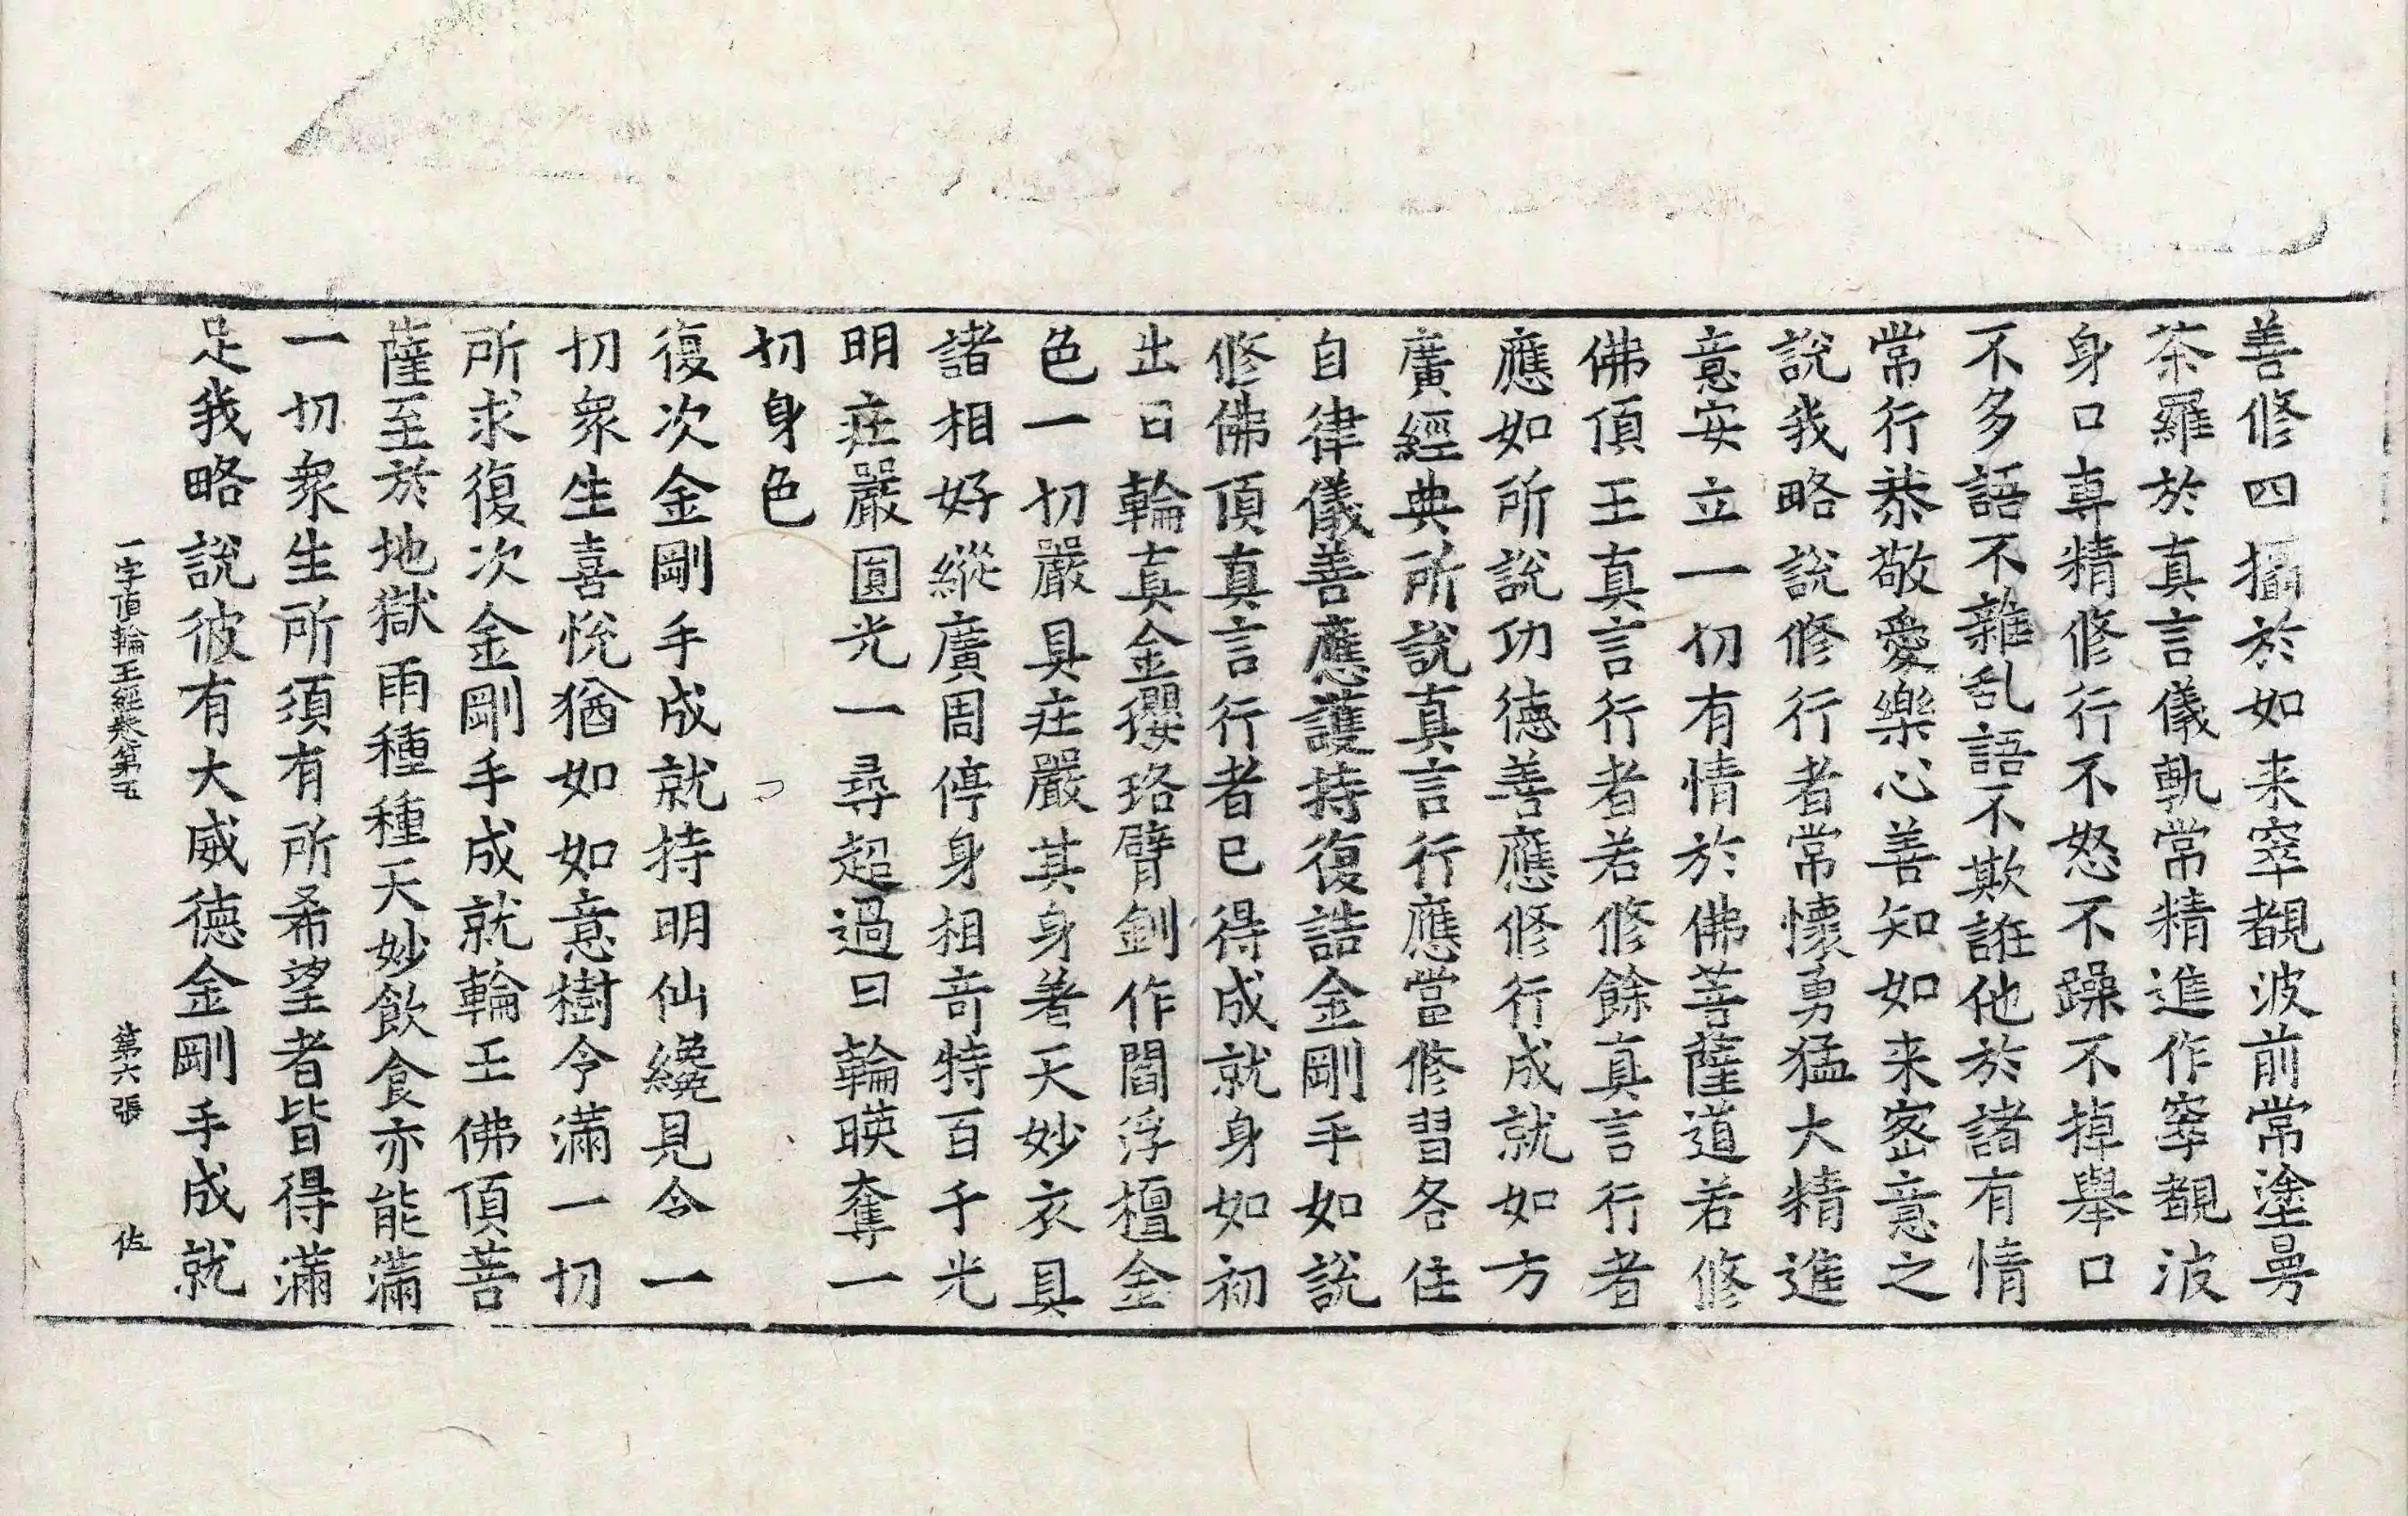 善修四攝於如来窣覩波前常塗曼
茶羅於真言儀軌常精進作窣覩波
身口専精修行不怒不躁不掉舉口
不多語不雜乱語不欺誑他於諸有情
常行恭敬愛樂心善知如来宻意之
說我略說修行者常懷勇猛大精進
意安立一切有情於佛菩薩道若修
佛頂王真言行者若修餘真言行者
應如所說功德善應修行成就如方
廣經典所說真言行應當修習各住
自律儀善應護持復誥金剛手如說
修佛頂真言行者已得成就身如初
出日輪真金瓔珞臂釧作閻浮檀金
色一切嚴具莊嚴其身著天妙衣具
諸相好縱廣周停身相竒特百千光
明莊嚴圓光一尋超過日輪暎奪一
切身色
復次金剛手成就持明仙纔見令一
切衆生喜悅猶如如意樹令滿一切
所求復次金剛手成就輪王佛頂菩
薩至於地獄雨種種天妙飲食亦能滿
一切衆生所須有所希望者皆得滿
足我略說彼有大威德金剛手成就
一字頂輪王經卷第五 第六張 佐